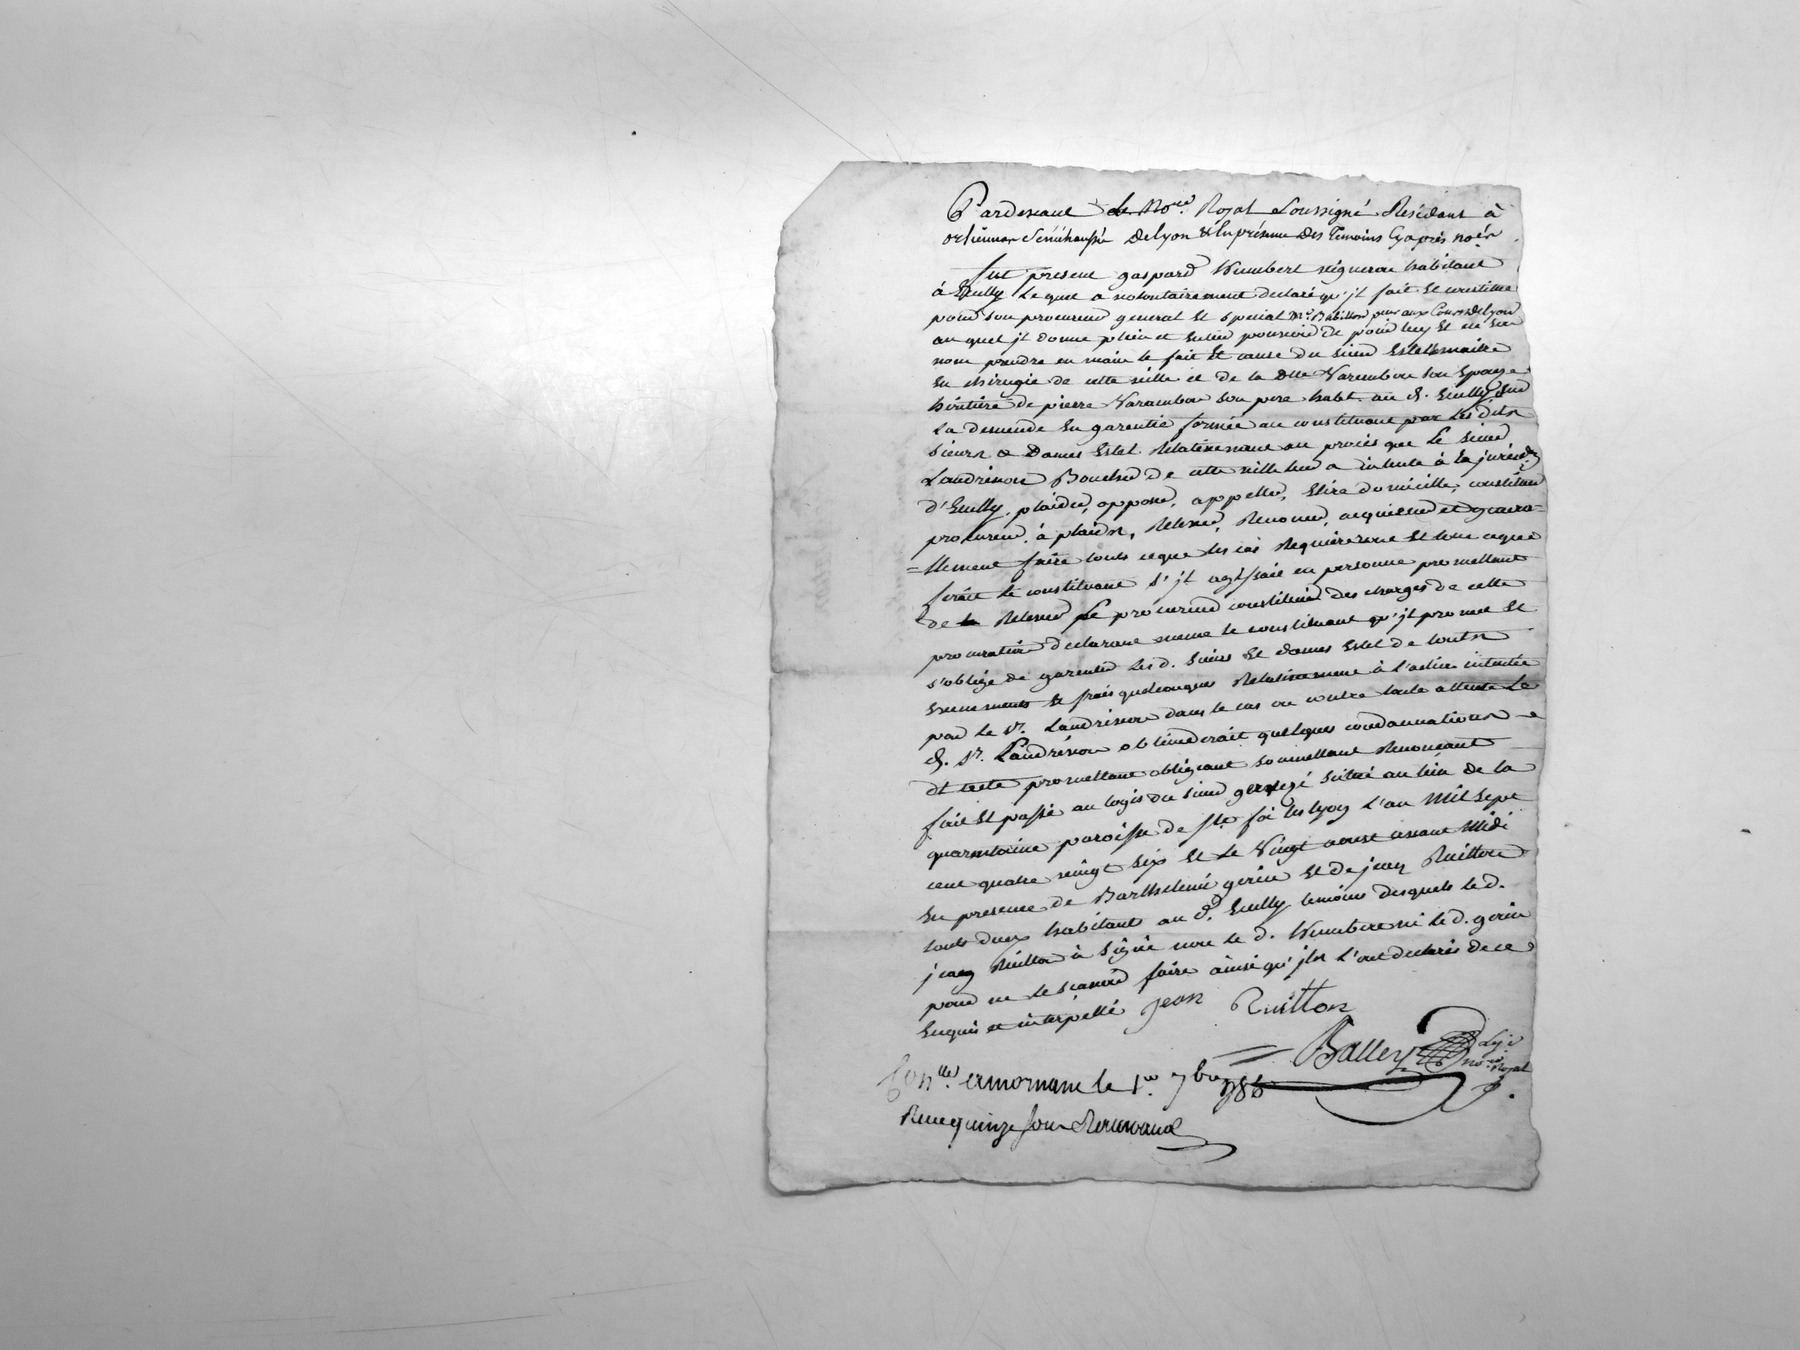 Pardevant le No.re Royal Soussigné Résidant à
orliennas Sénéchaussée de Lyon & En présence des Témoins Cy après no.és
fut présent gaspard Humbert vigneron habitant
à Ecully Lequel a volontairement declaré qu'jl fait et constitue
pour son procureur general et special M.e Babillon pror aux Cours de Lyon
au quel jl donne plein et entier pouvoir de pour luy et en son
nom prendre en main le fait et cause du sieur Estel maitre
en chirugie de cette ville et de la Dlle Varembon son Epouse
héritière de pierre Varambon son pere habt. au d. Ecully sur
La demende En garentie formée au constituant par les dits
sieurs & Dames Estel Relativement au procès que Le sieur
Landrivon Boucher de cette ville leur a intenté à la juridon
d'Ecully, plaider, opposer, appeller, Elire domicille, constituer
procureur, à plaids, Relever, Renoncer, acquiescer et genera=
=llement faire touts ceque les cas Requiereront et tout ceque
feroit le constituant s'jl agissait en personne promettant
de Relever Le procureur constitué des charges de cette
procuration declarant meme le constituant qu'jl promet et
s'oblige de garentir Les d. sieur et dames Estel de touts
evenements et frais quelconques Relativement à l'action intentée
par le Sr. Landrivon dans le cas ou contre toute attente Le
d. Sr. Landrivon obtienderait quelques condamnations
dt acte promettant obligeant soumettant Renonceant
fait et passé au logis du sieur situé au lieu de la
quarantaine paroisse de Ste foi les lyon L'an Mil sept
cent quatre vingt six et le Vingt aoust avant Midi
En presence de Barthelemi gerin et de jean Ruitton
touts deux habitants au d. Ecully temoins desquels le d.
jean Ruitton à signé non le d. Humbert ni le d. gerin
pour ne le scavoir faire ainsi qu'jls l'ont declarés de ce
Enquis et interpellé jean Ruitton
Balley
no.re Royal
Con.llé a mornant le 1.er 7bre 1786
Recu quinze sous